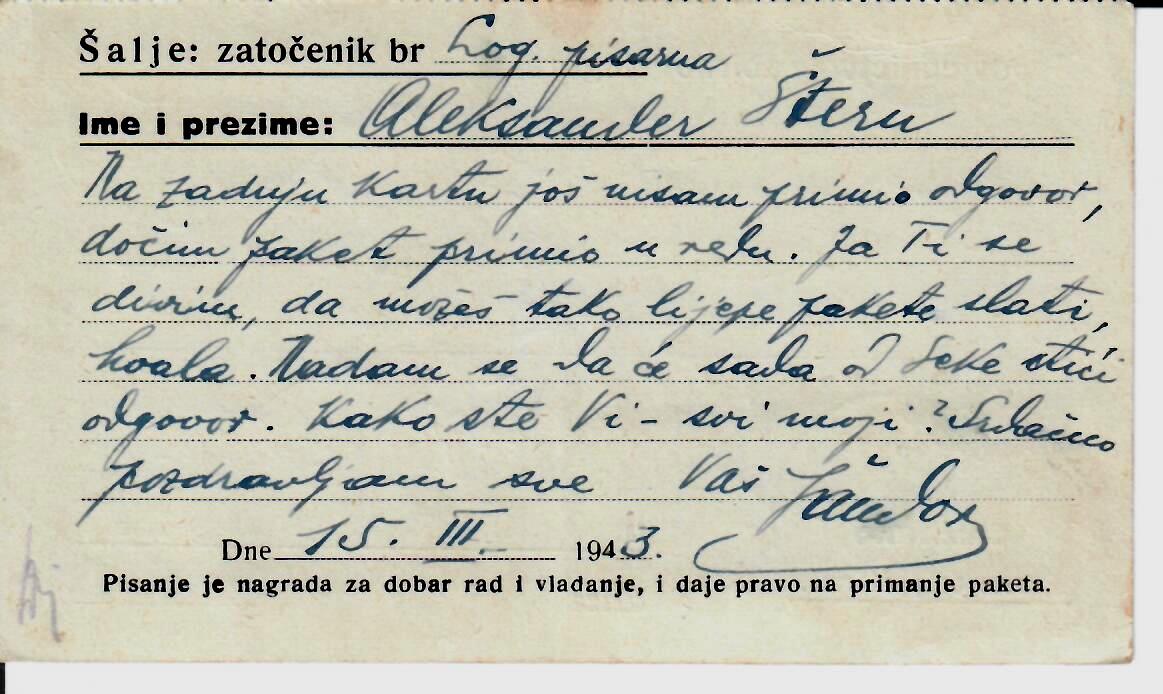 Šalje: zatočenik br Log. pisarna
Ime i prezime: Aleksander Štern
Na zadnju kartu još nisam primio odgovor,
dočim paket primio u redu. Ja Ti se
divim, da možeš tako lijepe pakete slati,
hvala. Nadam se da će sada od Seke stići
odgovor. Kako ste Vi - svi moji? Srdačno
pozdravljam sve Vaš Šandor
Dne 15. III. 1943.
Pisanje je nagrada za dobar rad i vladanje, i daje pravo na primanje paketa.